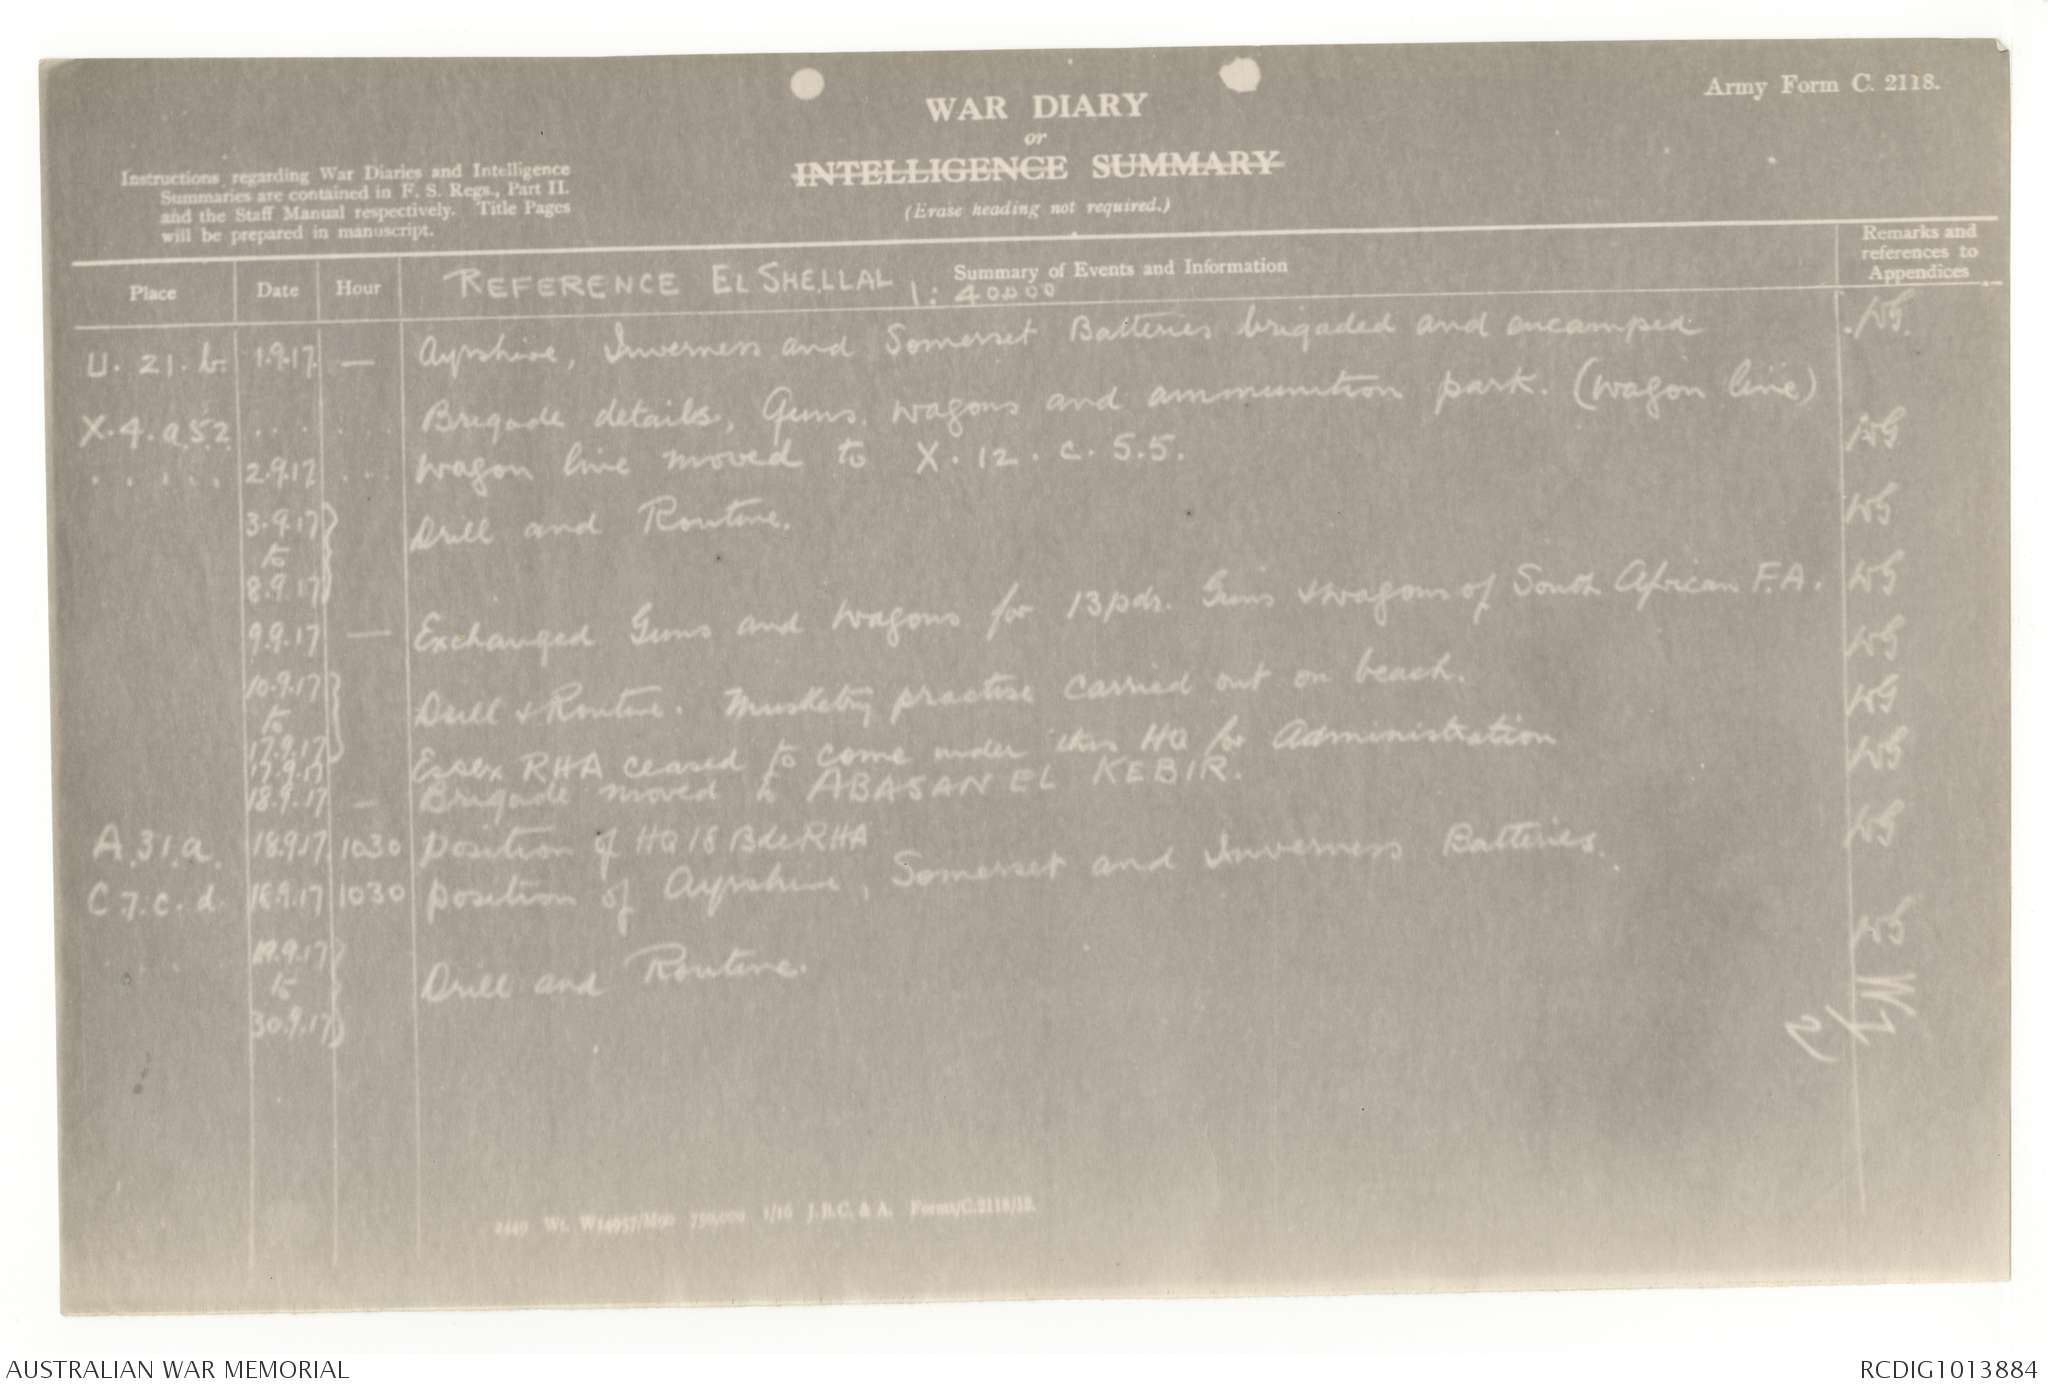 Army Form C. 2118.
WAR DIARY
or
INTELLIGENCE SUMMARY
(Erase heading not required.)
Instructions regarding War Diaries and Intelligence
Summaries are contained in F. S. Regs., Part II.
and the Staff Manual respectively. Title Pages
will be prepared in manuscript.
Place Date Hour REFERENCE EL SHELLAL 1:40000 Summary of Events and Information Remarks and references to Appendices
U. 21. b. 1.9.17. — Ayrshire, Inverness and Somerset Batteries brigaded and encamped
X. 4. a 5.2 .... ... Brigade details, Guns, wagons and ammunition park. (Wagon line)
..... 2.9.17. ... Wagon line moved to X. 12. c. 5.5.
3.9.17
to
8.9.17 Drill and Routine.
9.9.17 — Exchanged Guns and Wagons for 13pdr. Guns & Wagons of South African F.A.
10.9.17
to
17.9.17 Drill & Routine. Musketry practise carried out on beach.
17.9.17 Essex RHA ceased to come under this HQ for Administration
18.9.17 — Brigade moved to ABASAN EL KEBIR.
A.31.a. 18.9.17 1030 position of HQ 18 Bde RHA
C.7.c.d. 18.9.17 1030 position of Ayrshire, Somerset and Inverness Batteries.
19.9.17
to
30.9.17 Drill and Routine.
2449 Wt. W14957/M90 750,000 1/16 J.B.C. & A. Forms/C.2118/12.
AUSTRALIAN WAR MEMORIAL
RCDIG1013884